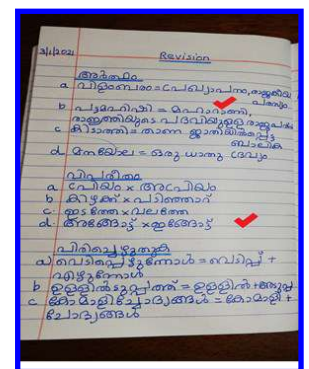 3/1/2021
Revision
അർത്ഥം
a വിളംബരം = പ്രഖ്യാപനം, രാജകീയ
പരസ്യം
b പട്ടമഹിഷി = മഹാറാണി,
രാജ്ഞിയുടെ പദവിയുള്ള രാജപത്നി
c കിടാത്തി = താണ ജാതിയിൽപ്പെട്ട
ബാലിക
d മനയോല = ഒരു ധാതു ദ്രവ്യം
വിപരീതം
a പ്രിയം x അപ്രിയം
b കിഴക്ക് x പടിഞ്ഞാറ്
c ഇടത്തേ x വലത്തേ
d അങ്ങോട്ട് x ഇങ്ങോട്ട്
പിരിച്ചെഴുതുക
a) വെടിപ്പെഴുന്നോൾ = വെടിപ്പ് +
എഴുന്നോൾ
b ഉള്ളിൽ = ഉള്ളിൽ +
c കോമാളിച്ചോദ്യങ്ങൾ = കോമാളി +
ചോദ്യങ്ങൾ